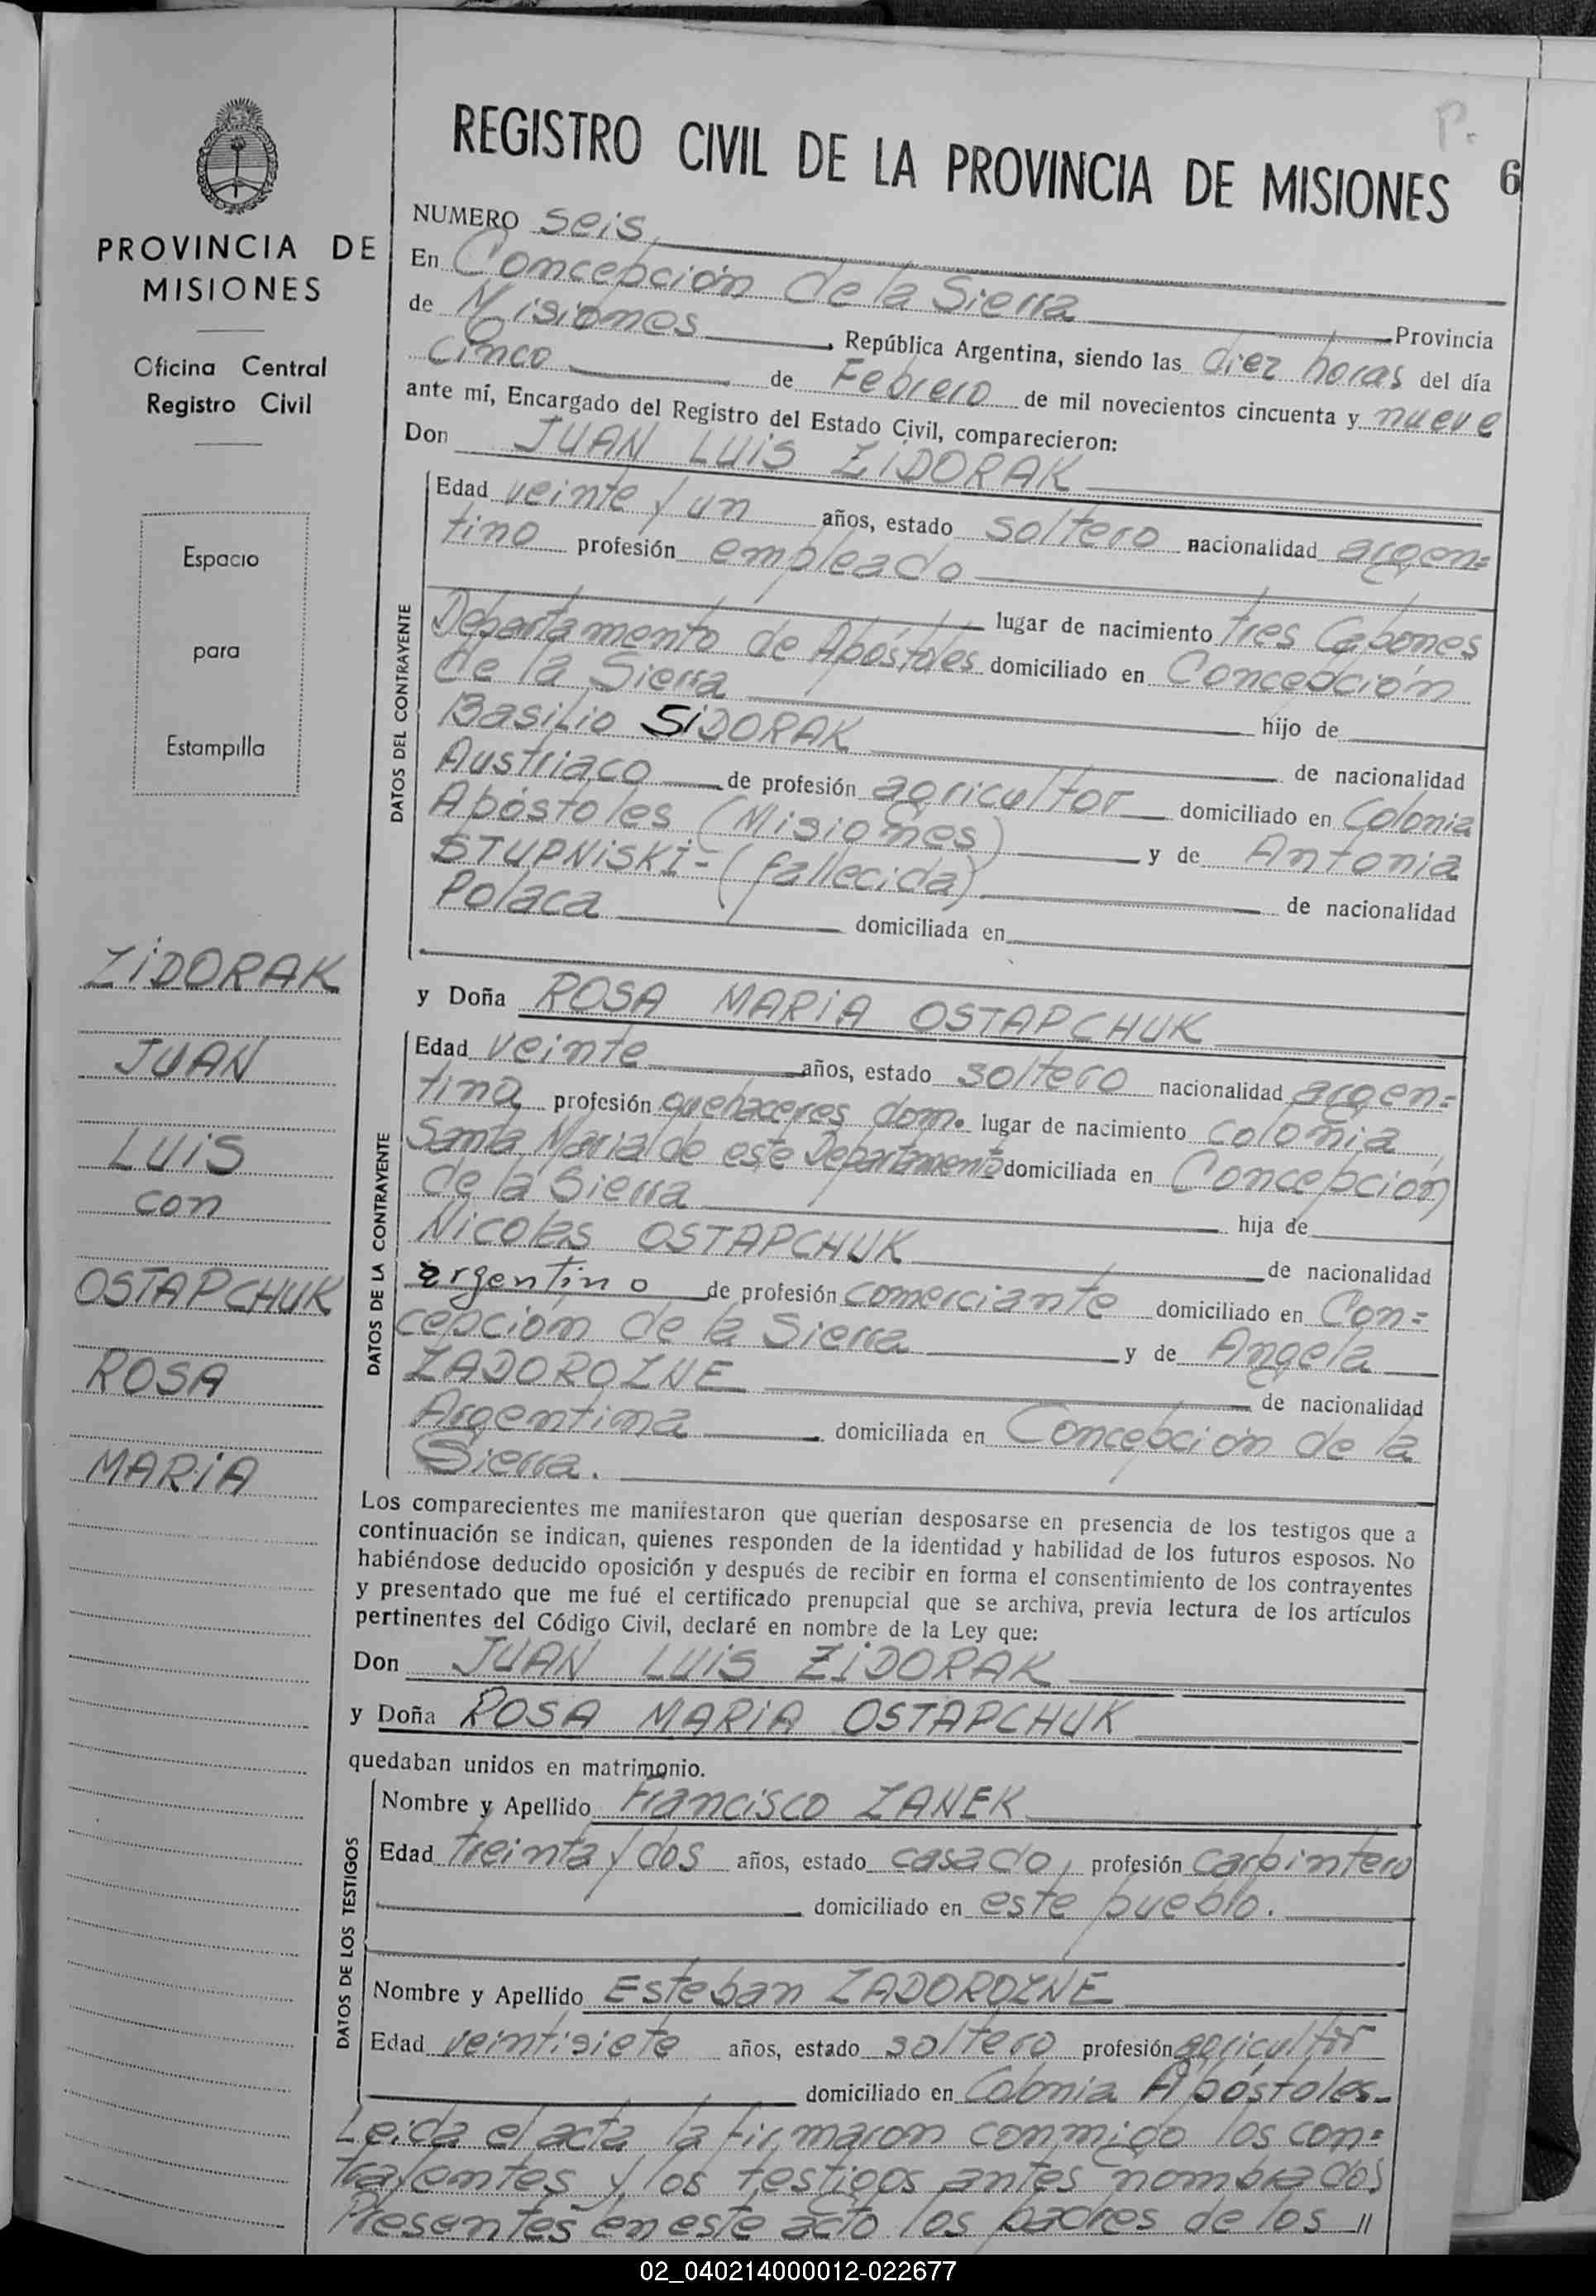 P.
6
REGISTRO CIVIL DE LA PROVINCIA DE MISIONES
PROVINCIA DE
MISIONES
Oficina Central
Registro Civil
Espacio
para
Estampilla
ZiDORAK
JUAN
LUiS
con
OSTAPCHUK
ROSA
MARiA
NUMERO seis
En Concepción de la Sierra Provincia
de Misiones, República Argentina, siendo las diez horas del día
cinco de Febrero de mil novecientos cincuenta y nueve
ante mí, Encargado del Registro del Estado Civil, comparecieron:
Don JUAN LUiS ZiDORAK
DATOS DEL CONTRAYENTE
Edad veinte y un años, estado soltero nacionalidad argen=
tino profesión empleado
lugar de nacimiento Tres Capones
Departamento de Apóstoles domiciliado en Concepción
de la Sierra hijo de
Basilio SiDORAK de nacionalidad
Austriaco de profesión agricultor domiciliado en Colonia
Apóstoles (Misiones) y de Antonia
STUPNiSKi-(fallecida) de nacionalidad
Polaca domiciliada en
y Doña ROSA MARiA OSTAPCHUK
DATOS DE LA CONTRAYENTE
Edad veinte años, estado soltero nacionalidad argen=
tina profesión quehaceres dom. lugar de nacimiento Colonia
Santa Maria de este Departamento domiciliada en Concepción
de la Sierra hija de
Nicolas OSTAPCHUK de nacionalidad
argentino de profesión comerciante domiciliado en Con=
cepción de la Sierra y de Angela
ZADOROZNE de nacionalidad
Argentina domiciliada en Concepción de la
Sierra.
Los comparecientes me manifestaron que querían desposarse en presencia de los testigos que a
continuación se indican, quienes responden de la identidad y habilidad de los futuros esposos. No
habiéndose deducido oposición y después de recibir en forma el consentimiento de los contrayentes
y presentado que me fué el certificado prenupcial que se archiva, previa lectura de los artículos
pertinentes del Código Civil, declaré en nombre de la Ley que:
Don JUAN LUiS ZiDORAK
y Doña ROSA MARiA OSTAPCHUK
quedaban unidos en matrimonio.
DATOS DE LOS TESTIGOS
Nombre y Apellido Francisco ZANEK
Edad treinta y dos años, estado casado, profesión carpintero
domiciliado en este pueblo.
Nombre y Apellido Esteban ZADOROZNE
Edad veintisiete años, estado soltero profesión agricultor
domiciliado en Colonia Apóstoles-
Leida el acta la firmaron conmigo los con=
trayentes y los testigos antes nombrados
Presentes en este acto los padres de los "
02_040214000012-022677